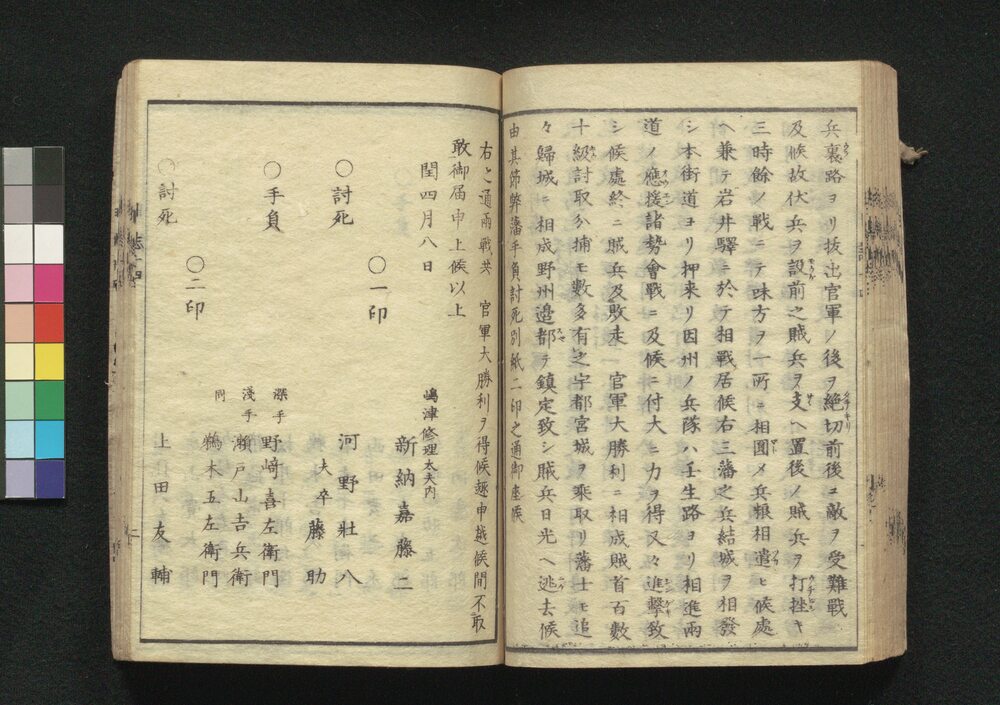 兵裏路ヨリ抜出官軍ノ後ヲ絶切前後ニ敵ヲ受難戰
及候故伏兵ヲ設前之賊兵ヲ支ヘ置後ノ賊兵ヲ打挫キ
三時餘ノ戰ニテ味方ヲ一所ニ相圓メ兵粮相遣ヒ候處
ヘ兼テ岩井驛ニ於テ相戰居候右三藩之兵結城ヲ相發
シ本街道ヨリ押来リ因州ノ兵隊ハ壬生路ヨリ相進兩
道ノ應援諸勢會戰ニ及候ニ付大ニ力ヲ得又々進撃致
シ候處終ニ賊兵及敗走 官軍大勝利ニ相成賊首百數
十級討取分捕モ數多有之宇都宮城ヲ乘取リ藩士モ追
々歸城ニ相成野州邉都ヲ鎮定致シ賊兵日光ヘ逃去候
由其節弊藩手負討死別紙二印之通御座候
右之通兩戰共 官軍大勝利ヲ得候趣申越候間不取
敢御届申上候以上
閏四月八日
嶋津修理太夫内
新納嘉藤二
〇一印
〇討死
河野壯八
夫卒 藤助
〇手負
深手 野﨑喜左衛門
淺手 瀬戸山吉兵衛
同 鵜木五左衛門
〇二印
〇討死
上田友輔